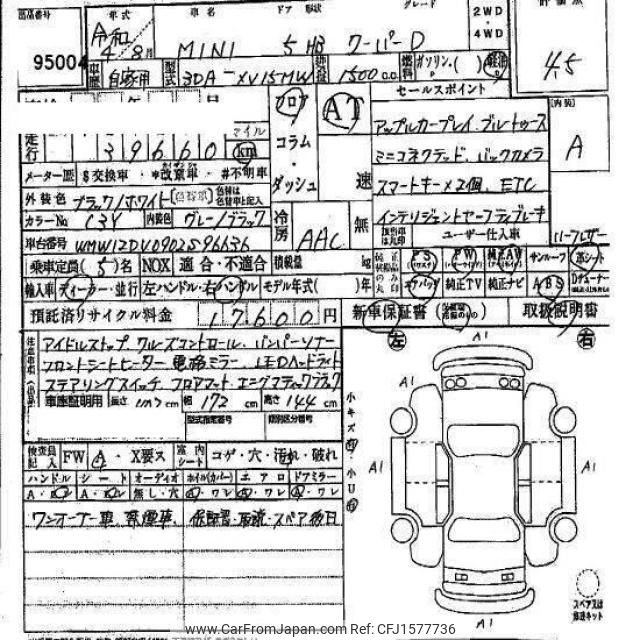 出品番号 年式 車名 ドア 形状 グレード 2WD・4WD 評価点
95004 令和 4年 8月 MINI 5 HB クーパーD 4.5
車歴 自家用 型式 3DA-XV15MW 排気量 1500 c.c. 燃料 ガソリン・( ) 軽油
フロア コラム・ダッシュ AT 速
セールスポイント
アップルカープレイ、ブルートゥース
ミニコネクテッド、バックカメラ
スマートキー×2個、ETC
インテリジェントセーフティブレーキ
[内装] A
走行 39660 マイル km
メーター歴 $交換車 ・ *改ざん車 ・ #不明車
外装色 ブラック/ホワイト [色替車] 色替は色替車上記入
カラーNo C3Y 内装色 グレー/ブラック 冷房 AAC 無
該当事は丸印 ユーザー仕入車 ハーフレザー
車台番号 WMW12DV0902S96636
乗車定員(5)名 NOX 適合・不適合 積載量 kg
純正装備品の丸印 PS PW 純正AW サンルーフ 革シート
輸入車 ディーラー・並行 左ハンドル・右ハンドル モデル年式( )年 エアバッグ 純正TV 純正ナビ ABS
預託済リサイクル料金 17600 円 新車保証書 取扱説明書
アイドルストップ、クルーズコントロール、バンパーソナー
フロントシートヒーター 電格ミラー、LEDヘッドライト
ステアリングスイッチ フロアマット、エニグマティックブラック
車庫証明用 長さ cm 幅 172 cm 高さ 144 cm
型式指定番号 類別区分番号
左 右
A1
A1 A1
A1 A1
A1
小キズ 小U
検査員記入 FW A ・ X要ス 室内シート コゲ・穴・汚れ・破れ
ハンドル シート オーディオ ホイル(カバー) エアロ ドアミラー
ワンオーナー車、禁煙車、保証書・取説・スペア後日
スペアタイヤ又は修理キット
www.CarFromJapan.com Ref: CFJ1577736